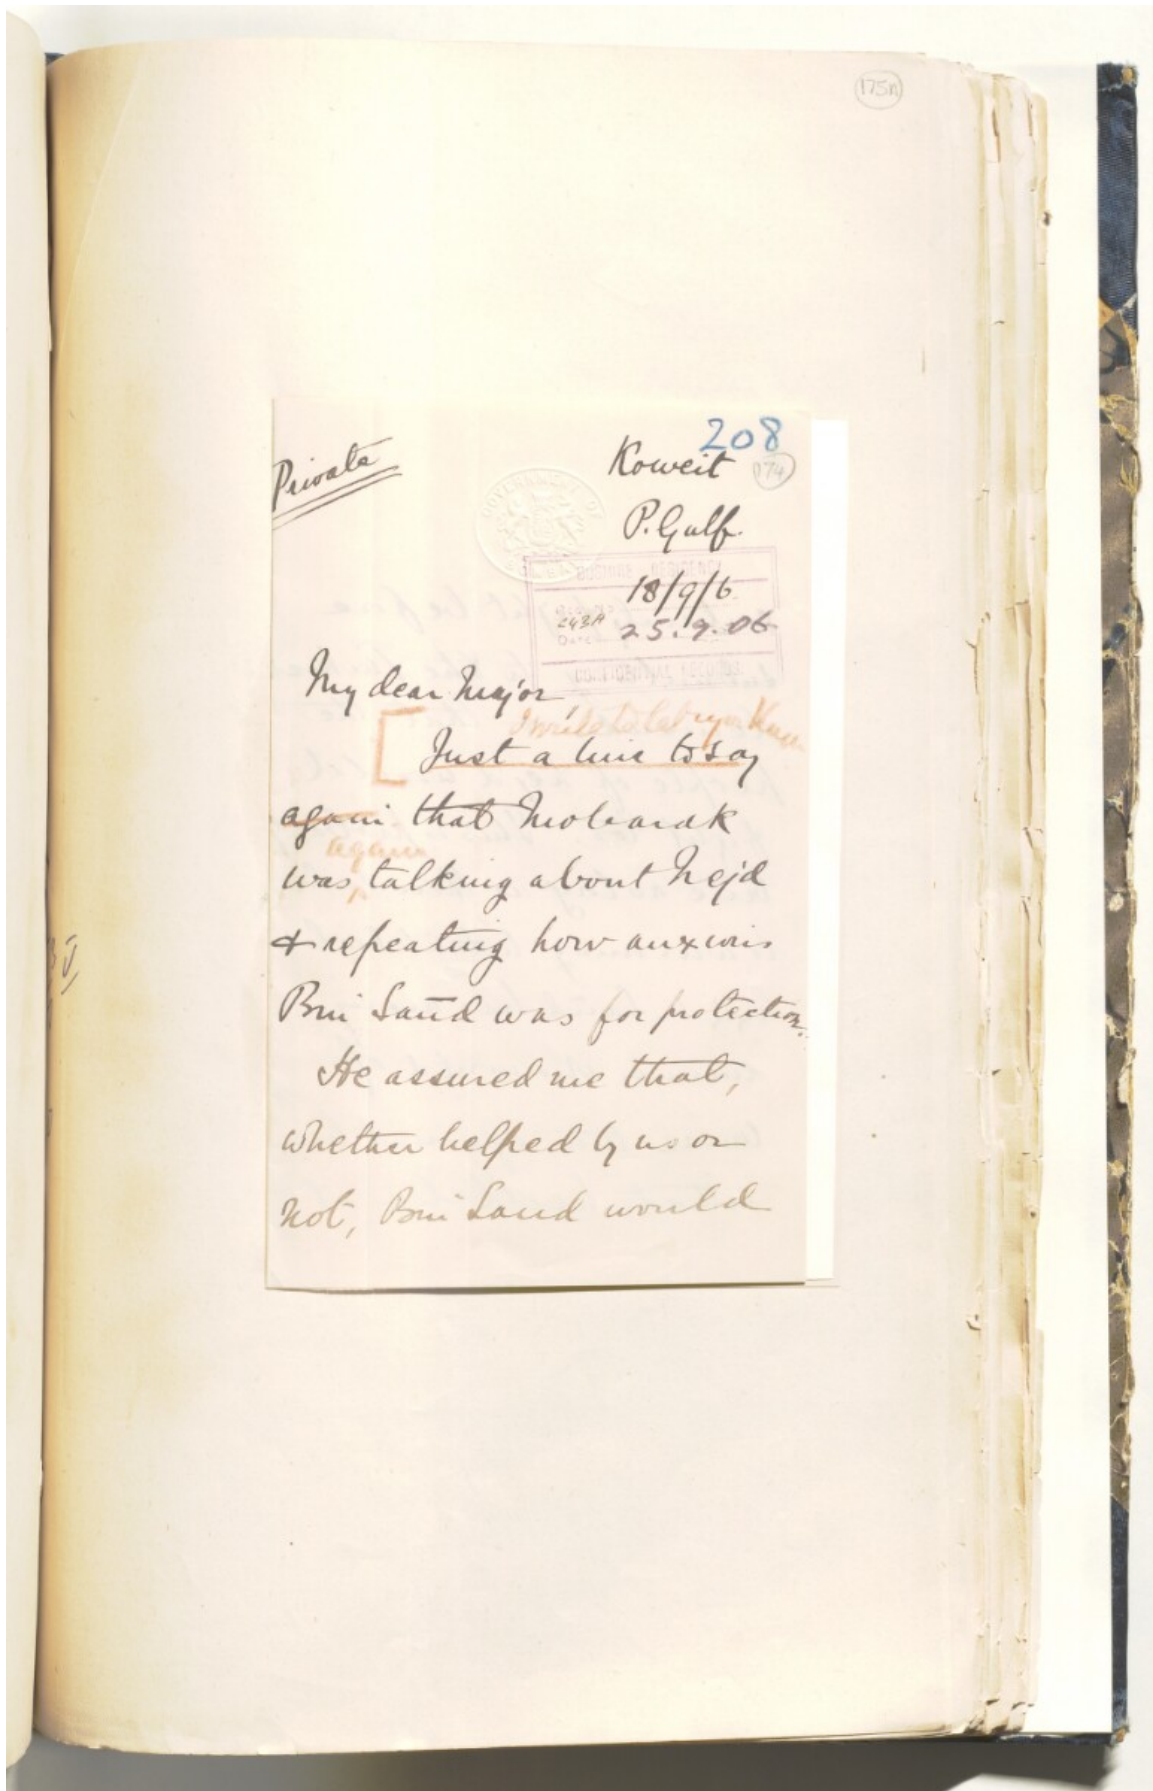 175A
208
Private
Koweit
174
P. Gulf.
GOVERNMENT OF
BUSHIRE RESIDENCY
18/9/6
243A
Date 25.9.06
CONFIDENTIAL RECORDS
My dear Major,
I write to let you know
Just a line to say
again that Mobarak
again
was, talking about Nejd
& repeating how anxious
Bin Saūd was for protection.
He assured me that,
whether helped by us or
not, Bin Saud would